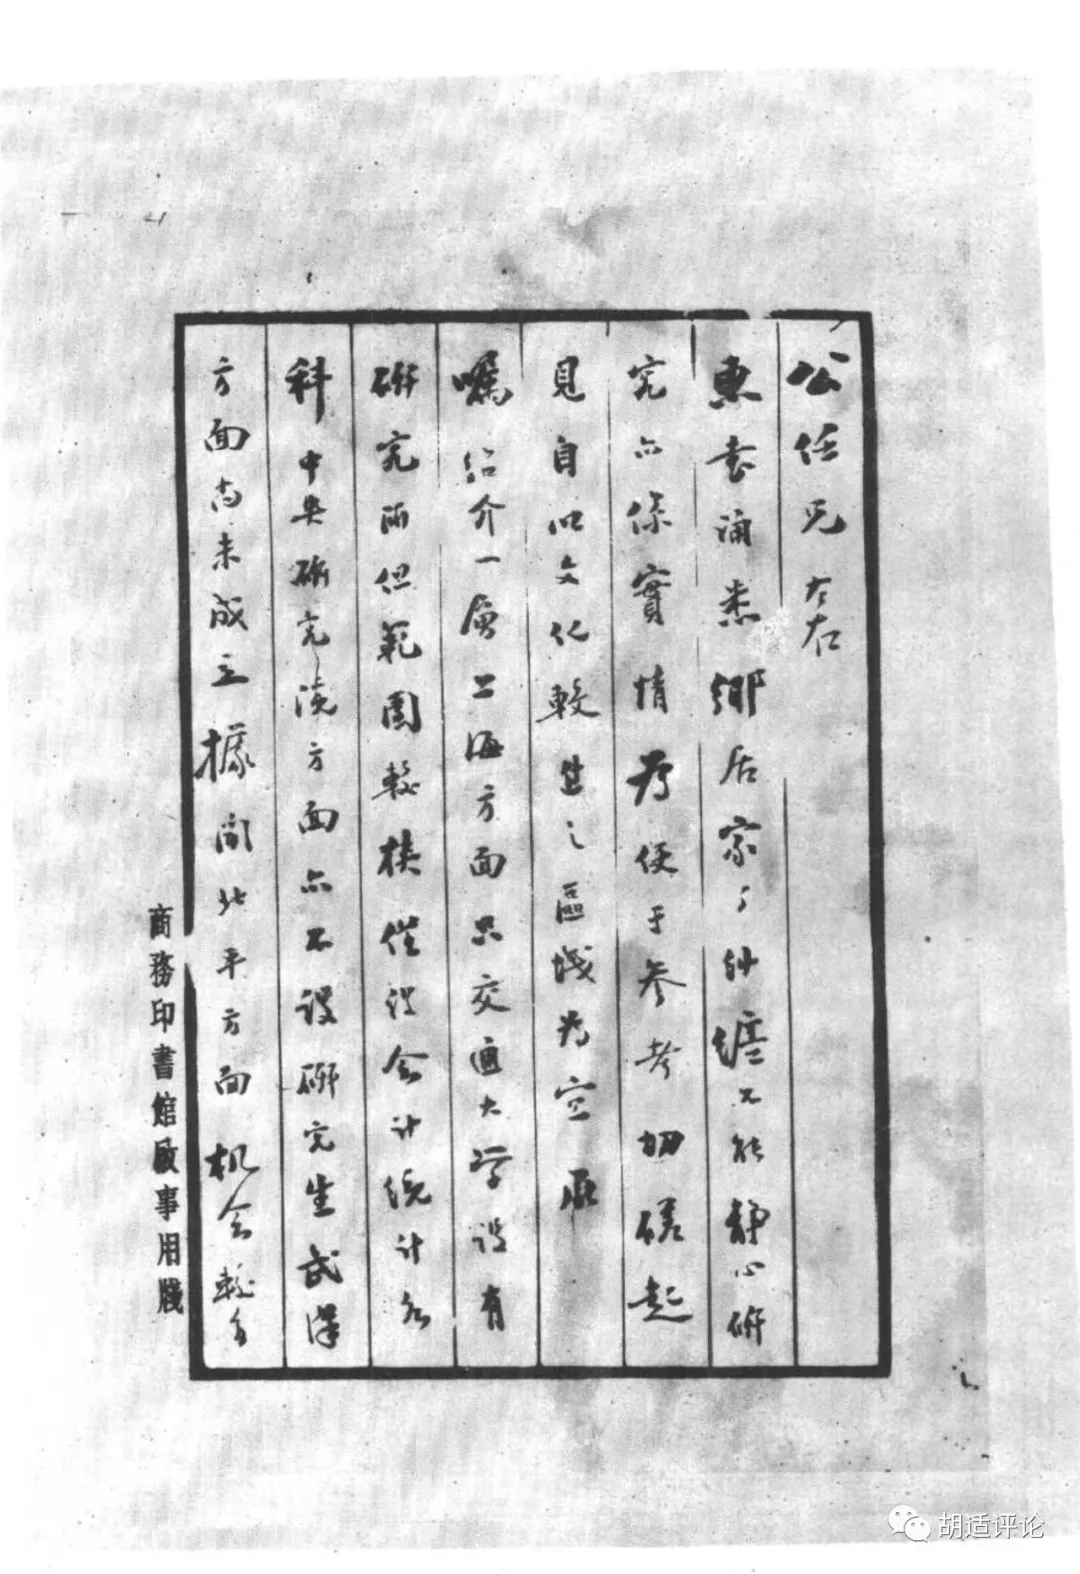 公任兄 左右
惠書誦悉鄉居家事糾纏不能靜心研
究亦係實情为便于參考切磋起
見自以文化較進之區域为宜承
囑紹介一層上海方面只交通大学设有
研究所但範圍較狹僅设会计统计各
科中央研究院方面亦不设研究生武漢
方面尚未成立據闻北平方面机会較多
商務印書館啟事用牋
胡适评论